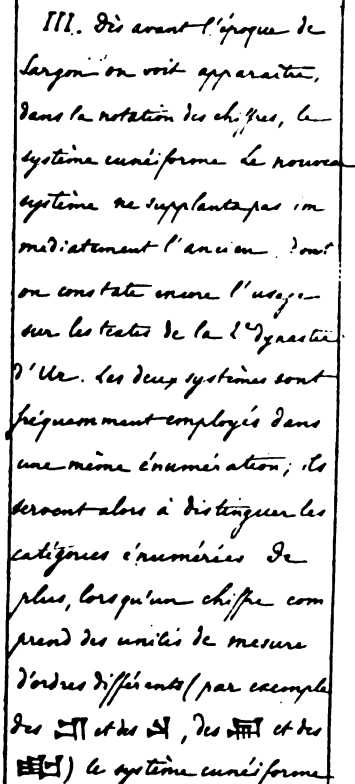 III. Dès avant l'époque de
Sargon on voit apparaître,
dans la notation des chiffres, le
système cunéiforme Le nouveau
système ne supplanta pas im
médiatement l'ancien dont
on constate encore l'usage
sur les textes de la 2e dynastie
d'Ur. Les deux systèmes sont
fréquemment employés dans
une même énumération; ils
servent alors à distinguer les
catégories énumérées De
plus, lorsqu'un chiffre com
prend des unités de mesure
d'ordres différents (par exemple
des et des , des et des
) le système cunéiforme